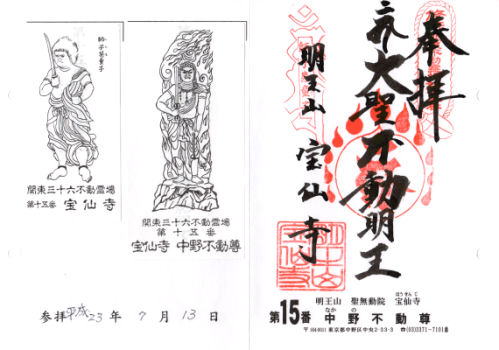 関東三十六不動霊場
第十五番 宝仙寺
関東三十六不動霊場
第十五番
宝仙寺 中野不動尊
参拝平成23年7月13日
奉拝
大聖不動明王
明王山 宝仙寺
ほうせんじ
明王山 聖無動院 宝仙寺
なかの
第15番 中野不動尊
〒164-0011 東京都中野区中央2-33-3 ☎(03)3371-7101